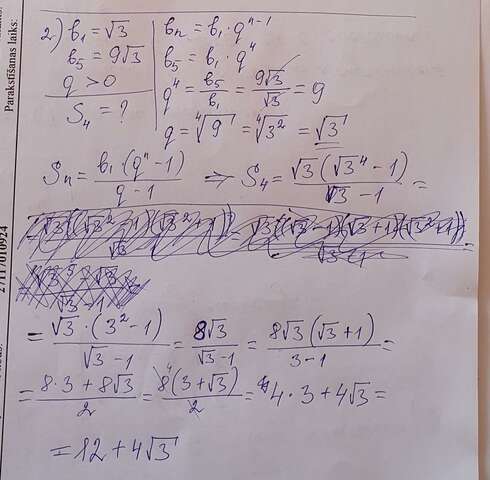 Parakstīšanas laiks:
27117010924
2) b₁ = √3
b₅ = 9√3
q > 0
S₄ = ?
bn = b₁ · qⁿ⁻¹
b₅ = b₁ · q⁴
q⁴ = b₅/b₁ = 9√3/√3 = 9
q = ⁴√9 = ⁴√3² = √3
Sn = b₁ · (qⁿ - 1)/(q - 1) ⇒ S₄ = √3(√3⁴ - 1)/(√3 - 1) =
= √3 · (3² - 1)/(√3 - 1) = 8√3/(√3 - 1) = 8√3(√3 + 1)/(3 - 1) =
= (8 · 3 + 8√3)/2 = 8(3 + √3)/2 = 4 · 3 + 4√3 =
= 12 + 4√3